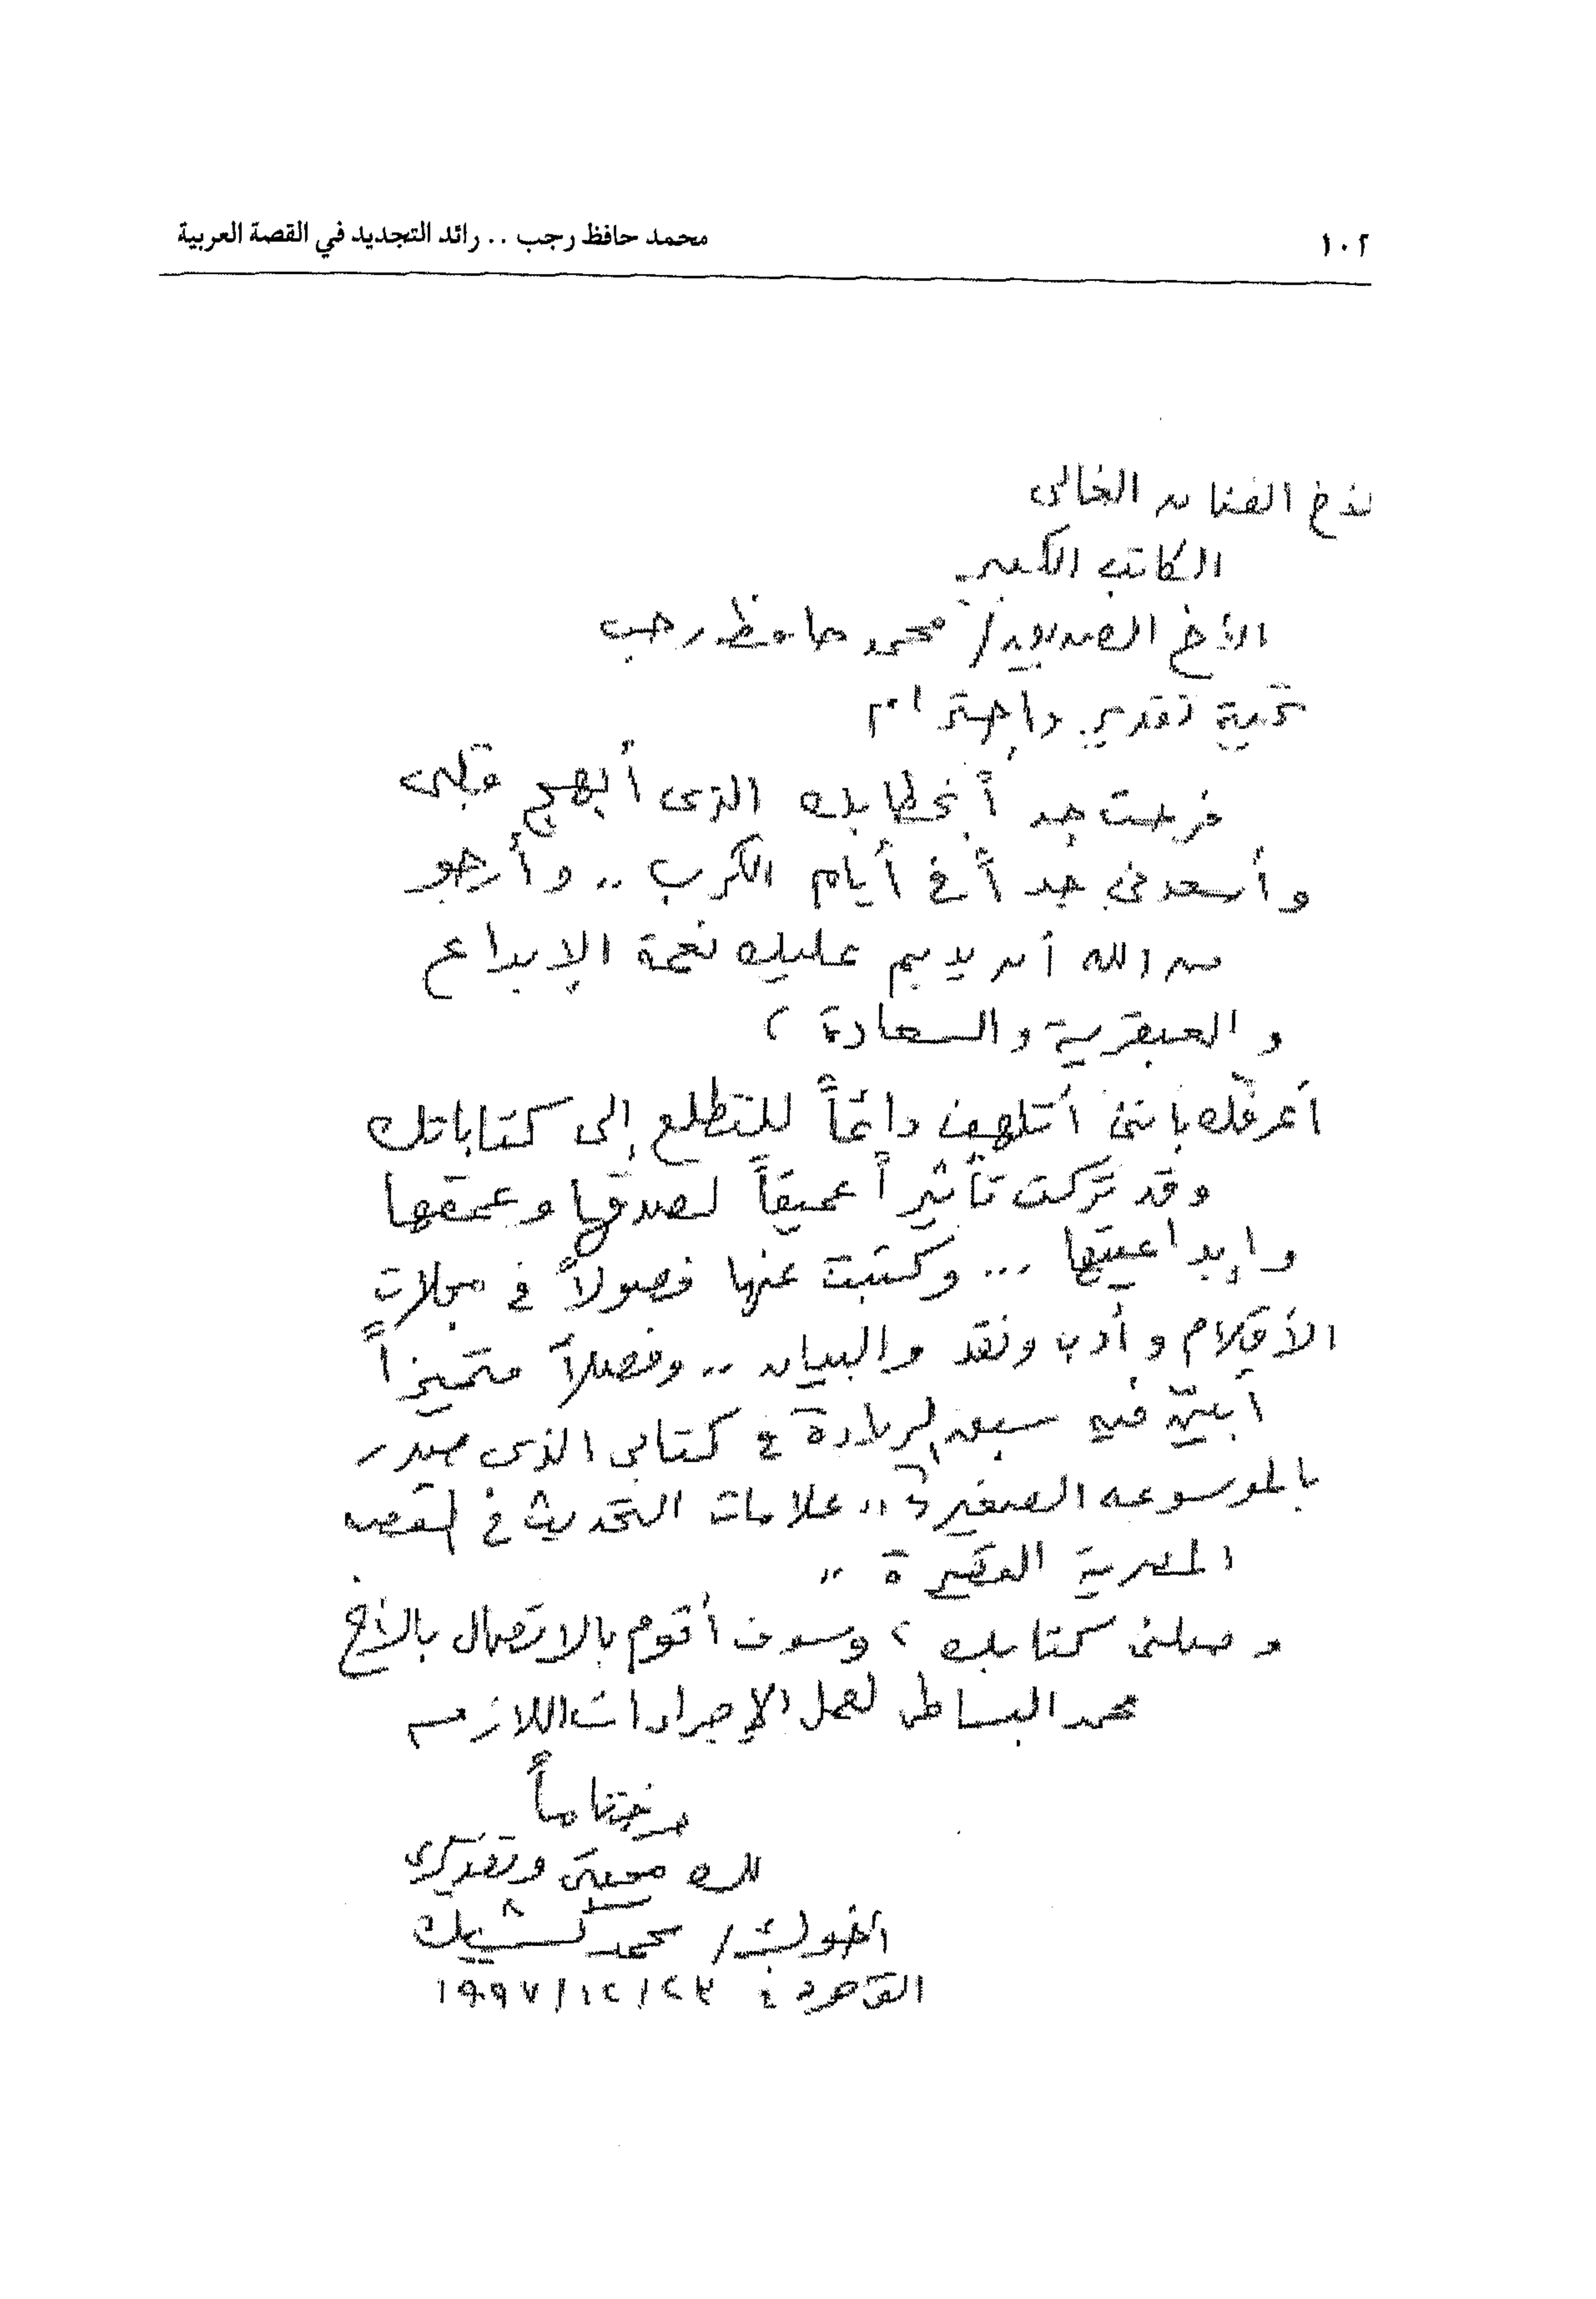 ١٠٢
محمد حافظ رجب .. رائد التجديد في القصة العربية
الأخ الفنان الغالى
الكاتب الكبير
الأخ الصديق / محمد حافظ رجب
تحية تقدير واحترام
فرحت جداً بخطابك الذى أبهج قلبى
وأسعدنى جداً فى أيام الكرب .. وأرجو
من الله أن يديم عليك نعمة الإبداع
والعبقرية والسعادة ،
أعرفك بأننى أتلهف دائماً للتطلع إلى كتاباتك
وقد تركت تأثيراً عميقاً لصدقها وعمقها
وإبداعيتها ... وكتبت عنها فصولاً فى مجلات
الأقلام وأدب ونقد والبيان .. وفصلاً متميزاً
أبيّن فيه سبق الريادة فى كتابى الذى صدر
بالموسوعه الصغيرة " علامات التحديث فى القصه
المصرية القصيرة "
وصلنى كتابك ، وسوف أقوم بالاتصال بالأخ
محمد البساطى لعمل الإجراءات اللازمه
وختاماً
لك محبتى وتقديرى
أخوك / محمد كشيك
القاهرة : ١٩٩٧/١٢/٢٣